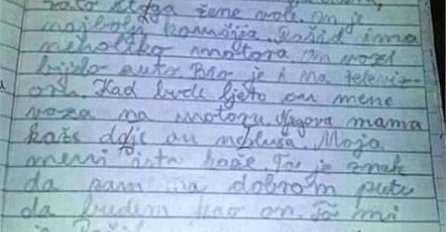 zato njega žene vole. On je
najbolji komšija. Rašid ima
nekoliko motora. On vozi
bijelo auto. Bio je i na televiz-
oru. Kad bude ljeto on mene
voza na motoru. Njegova mama
kaže da je on neslusa. Moja
meni isto kaže. To je znak
da sam na dobrom putu
da budem kao on. To mi
je